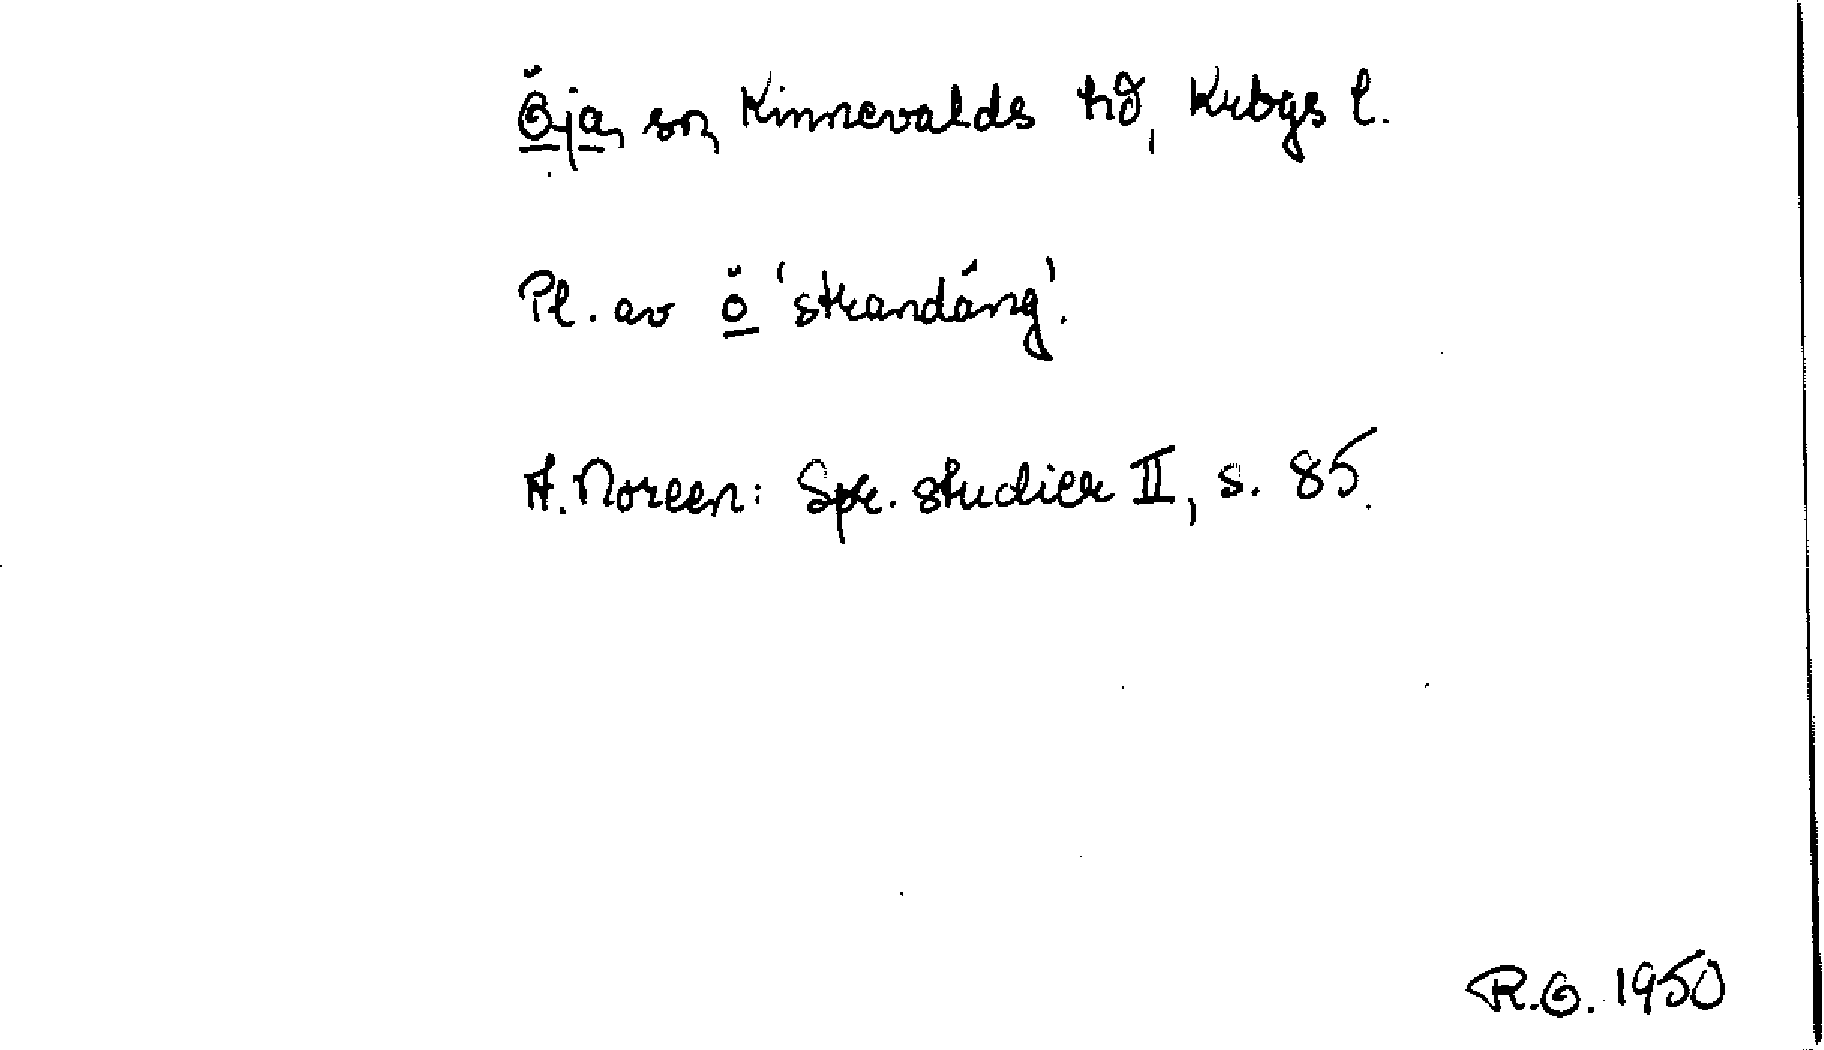 Öja, sn, Kinnevalds hd, Krbgs l.
Pl. av ö 'strandäng'.
A. Noreen: Spr. studier II, s. 85.
R.G. 1950